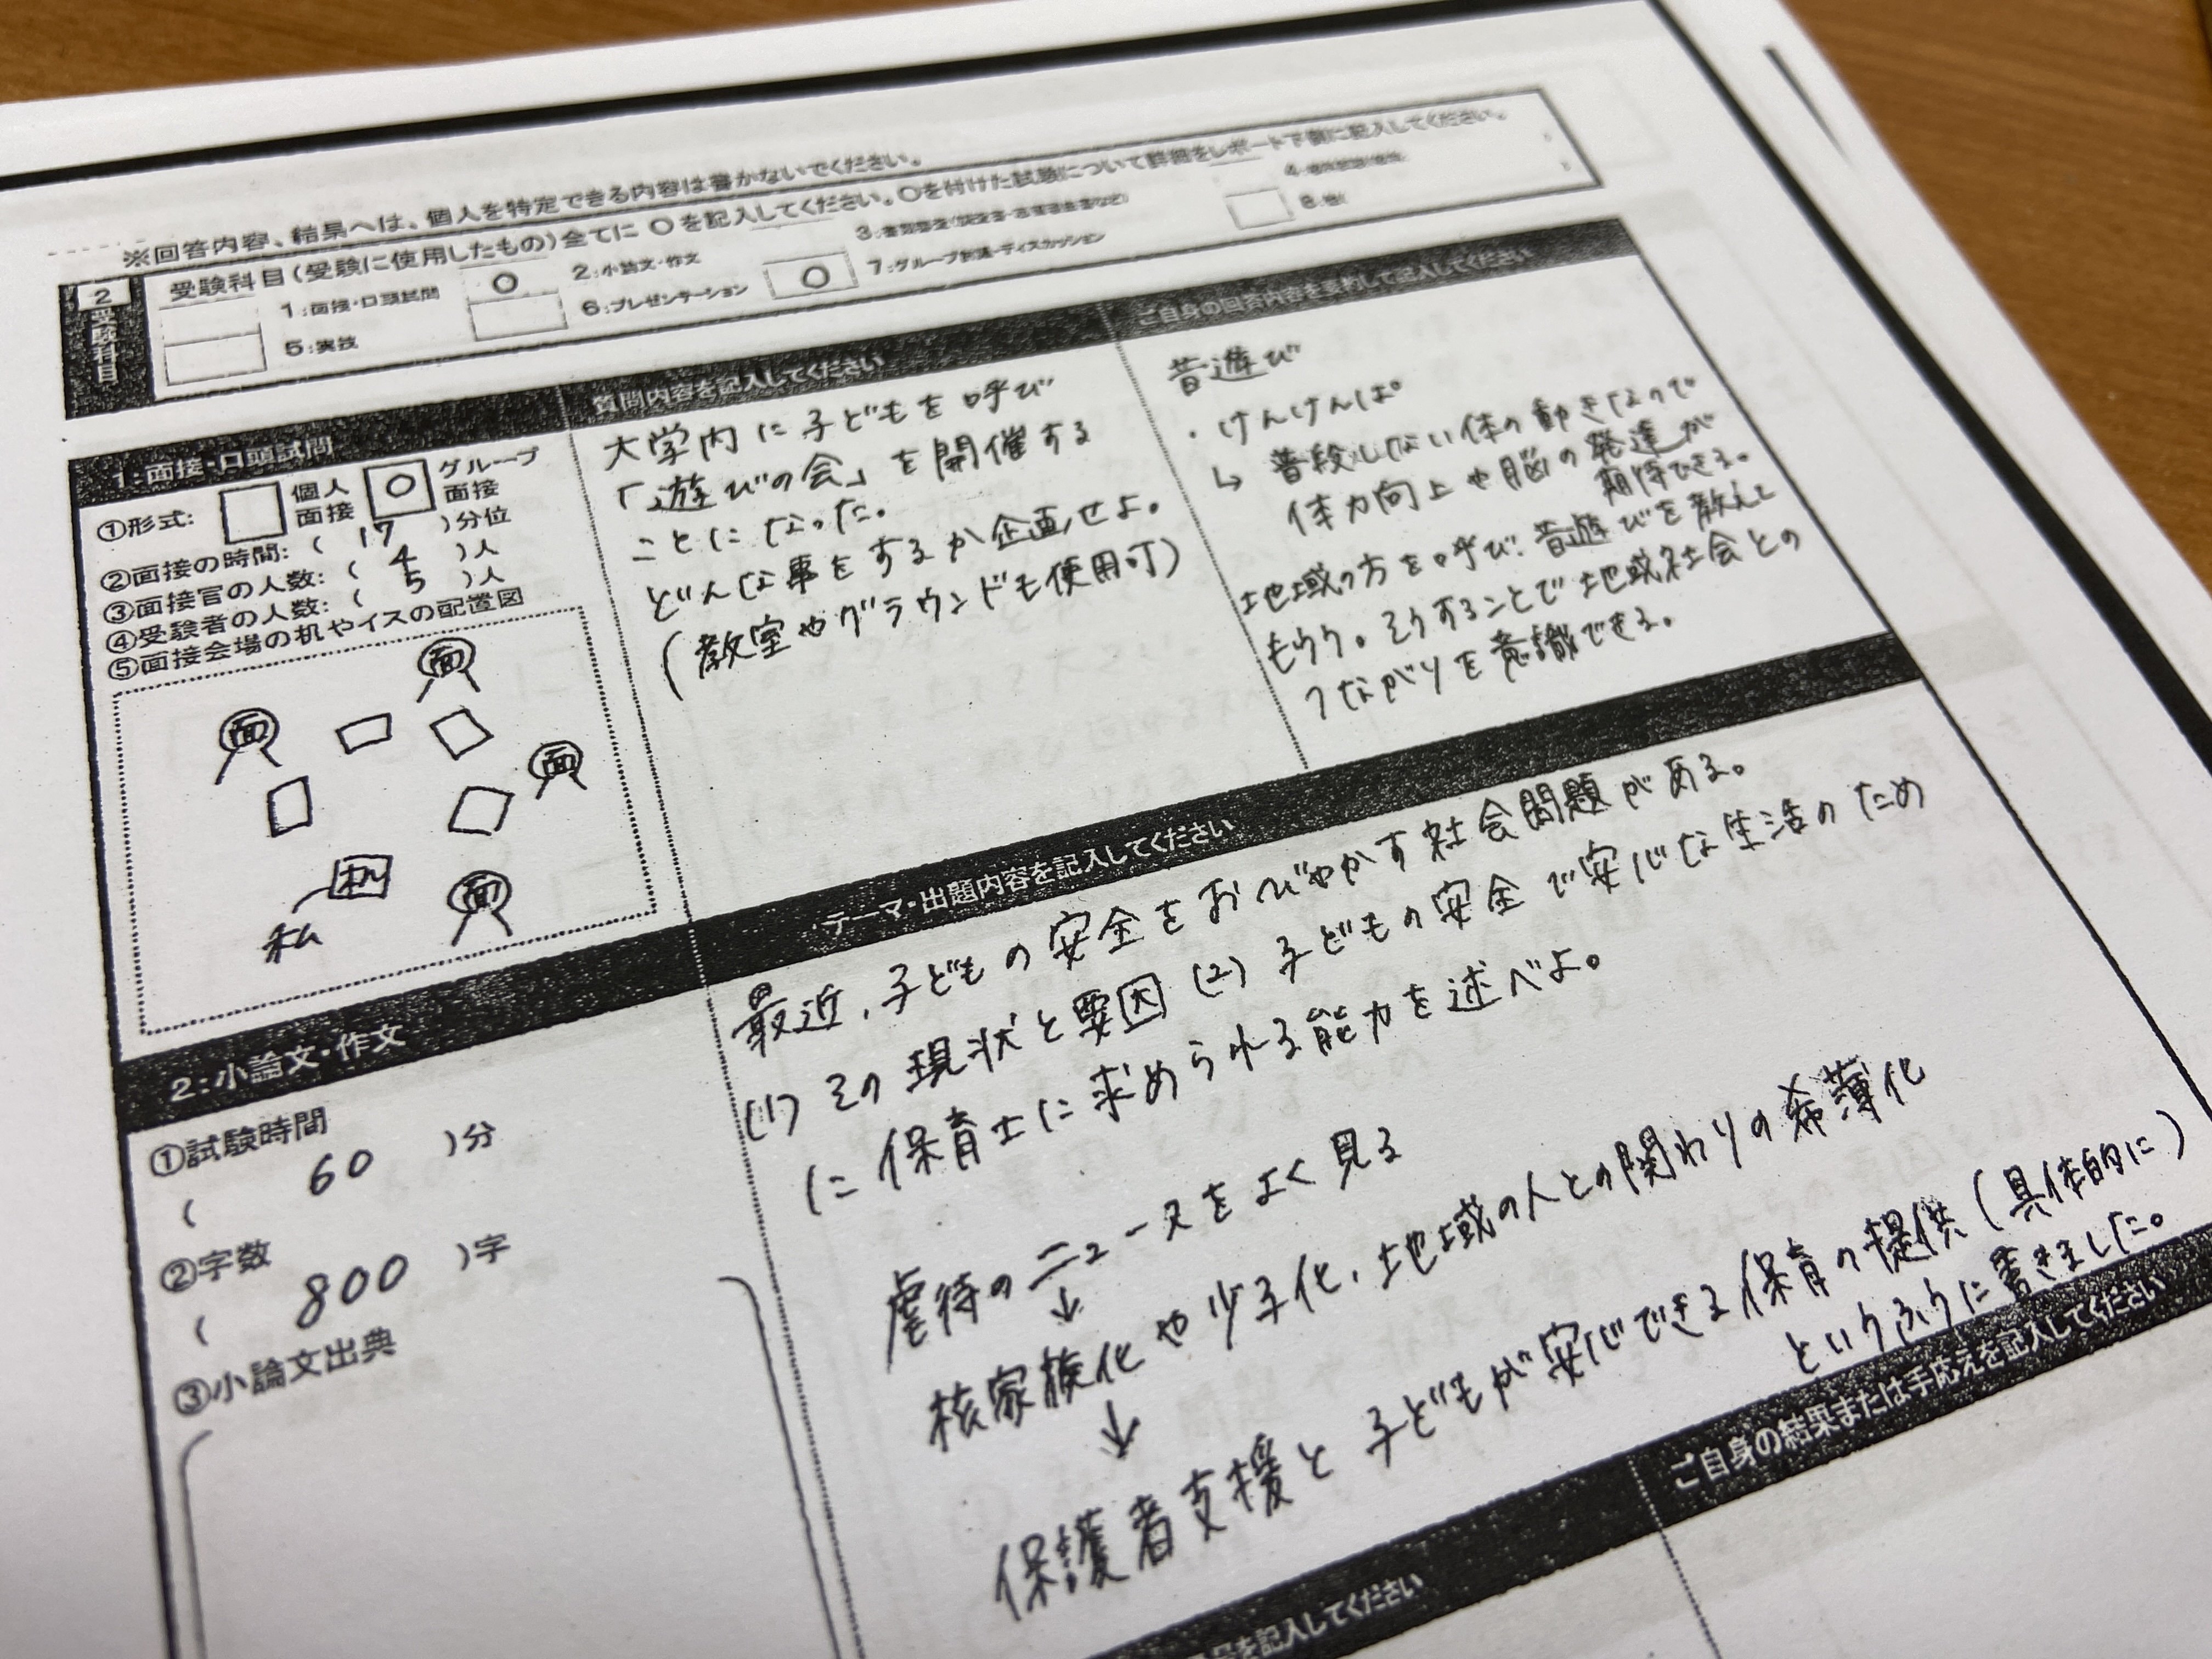 ※回答内容、結果へは、個人を特定できる内容は書かないでください。
2 受験科目
受験科目(受験に使用したもの)全てに○を記入してください。○を付けた試験について詳細をレポート下側に記入してください。
1:面接・口頭試問 ○ 2:小論文・作文
5:実技 6:プレゼンテーション ○ 7:グループ討議・ディスカッション 8:他(
1:面接・口頭試問
①形式: 個人面接 ○ グループ面接
②面接の時間:( 17 )分位
③面接官の人数:( 4 )人
④受験者の人数:( 5 )人
⑤面接会場の机やイスの配置図
面
面
面
机
私
面
質問内容を記入してください
大学内に子どもを呼び
「遊びの会」を開催する
ことになった。
どんな事をするか企画せよ。
(教室やグラウンドも使用可)
ご自身の回答内容を要約して記入してください
昔遊び
・けんけんぱ
↳ 普段しない体の動きなので
体力向上や脳の発達が
期待できる。
地域の方を呼び、昔遊びを教えて
もらう。そうすることで地域社会との
つながりを意識できる。
2:小論文・作文
①試験時間
( 60 )分
②字数
( 800 )字
③小論文出典
テーマ・出題内容を記入してください
最近、子どもの安全をおびやかす社会問題がある。
(1) その現状と要因 (2) 子どもの安全で安心な生活のため
に保育士に求められる能力を述べよ。
虐待のニュースをよく見る
↓
核家族化や少子化、地域の人との関わりの希薄化
↓
保護者支援と子どもが安心できる保育の提供(具体的に)
というふうに書きました。
を記入してください
ご自身の結果または手応えを記入してください